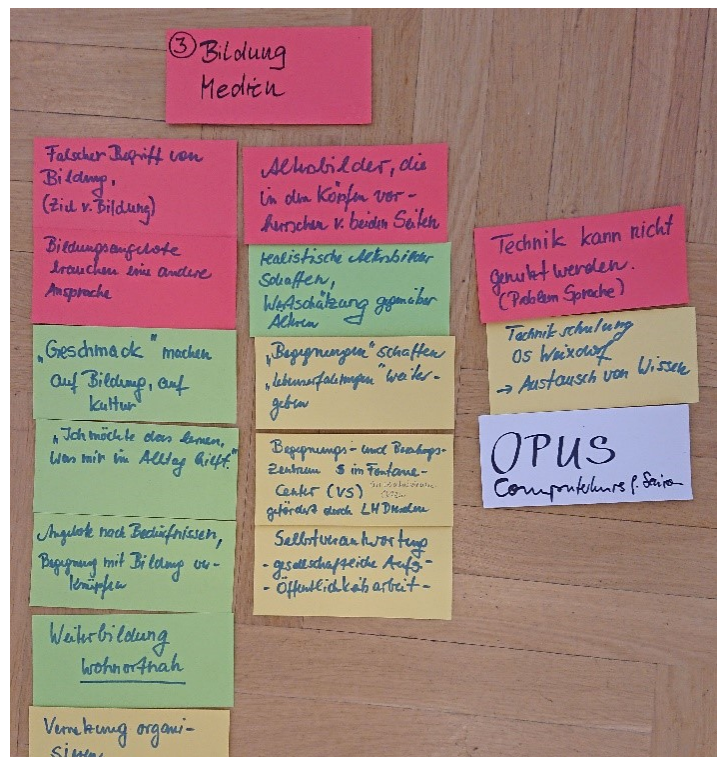 ③ Bildung
Medien
Falscher Begriff von
Bildung,
(Ziel v. Bildung)
Bildungsangebote
brauchen eine andere
Ansprache
„Geschmack" machen
auf Bildung, auf
Kultur
„Ich möchte das lernen,
was mir im Alltag hilft."
Angebote nach Bedürfnissen,
Begegnung mit Bildung ver-
knüpfen
Weiterbildung
wohnortnah
Vernetzung organi-
sieren
Altersbilder, die
in den Köpfen vor-
herrschen v. beiden Seiten
Realistische Altersbilder
schaffen,
Wertschätzung gegenüber
Älteren
„Begegnungen" schaffen
„Lebenserfahrungen" weiter-
geben
Begegnungs- und Beratungs-
Zentrum im Fontane-
Center (VS)
gefördert durch LH Dresden
Selbstverantwortung
- gesellschaftliche Aufg -
- Öffentlichkeitsarbeit -
Technik kann nicht
genutzt werden.
(Problem Sprache)
Technikschulung
OS Weixdorf
→ Austausch von Wissen
OPUS
Computerkurs f.